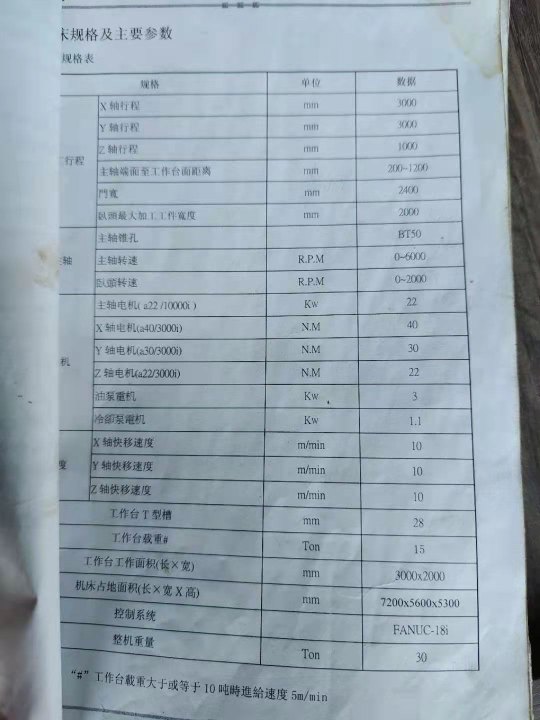 床规格及主要参数
规格表
规格 单位 数据
行程 X轴行程 mm 3000
Y轴行程 mm 3000
Z轴行程 mm 1000
主轴端面至工作台面距离 mm 200~1200
門寬 mm 2400
臥頭最大加工工件寬度 mm 2000
主轴 主轴锥孔 BT50
主轴转速 R.P.M 0~6000
臥頭转速 R.P.M 0~2000
机 主轴电机( a22 /10000i ) Kw 22
X轴电机(a40/3000i) N.M 40
Y轴电机(a30/3000i) N.M 30
Z轴电机(a22/3000i) N.M 22
油泵電机 Kw 3
冷卻泵電机 Kw 1.1
度 X轴快移速度 m/min 10
Y轴快移速度 m/min 10
Z轴快移速度 m/min 10
工作台T型槽 mm 28
工作台载重# Ton 15
工作台工作面积(长×宽) mm 3000x2000
机床占地面积(长×宽X高) mm 7200x5600x5300
控制系统 FANUC-18i
整机重量 Ton 30
"#"工作台載重大于或等于10吨時進給速度5m/min